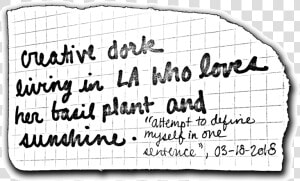 creative dork
living in LA who loves
her basil plant and
sunshine. "attempt to define
myself in one
sentence", 03-18-2018